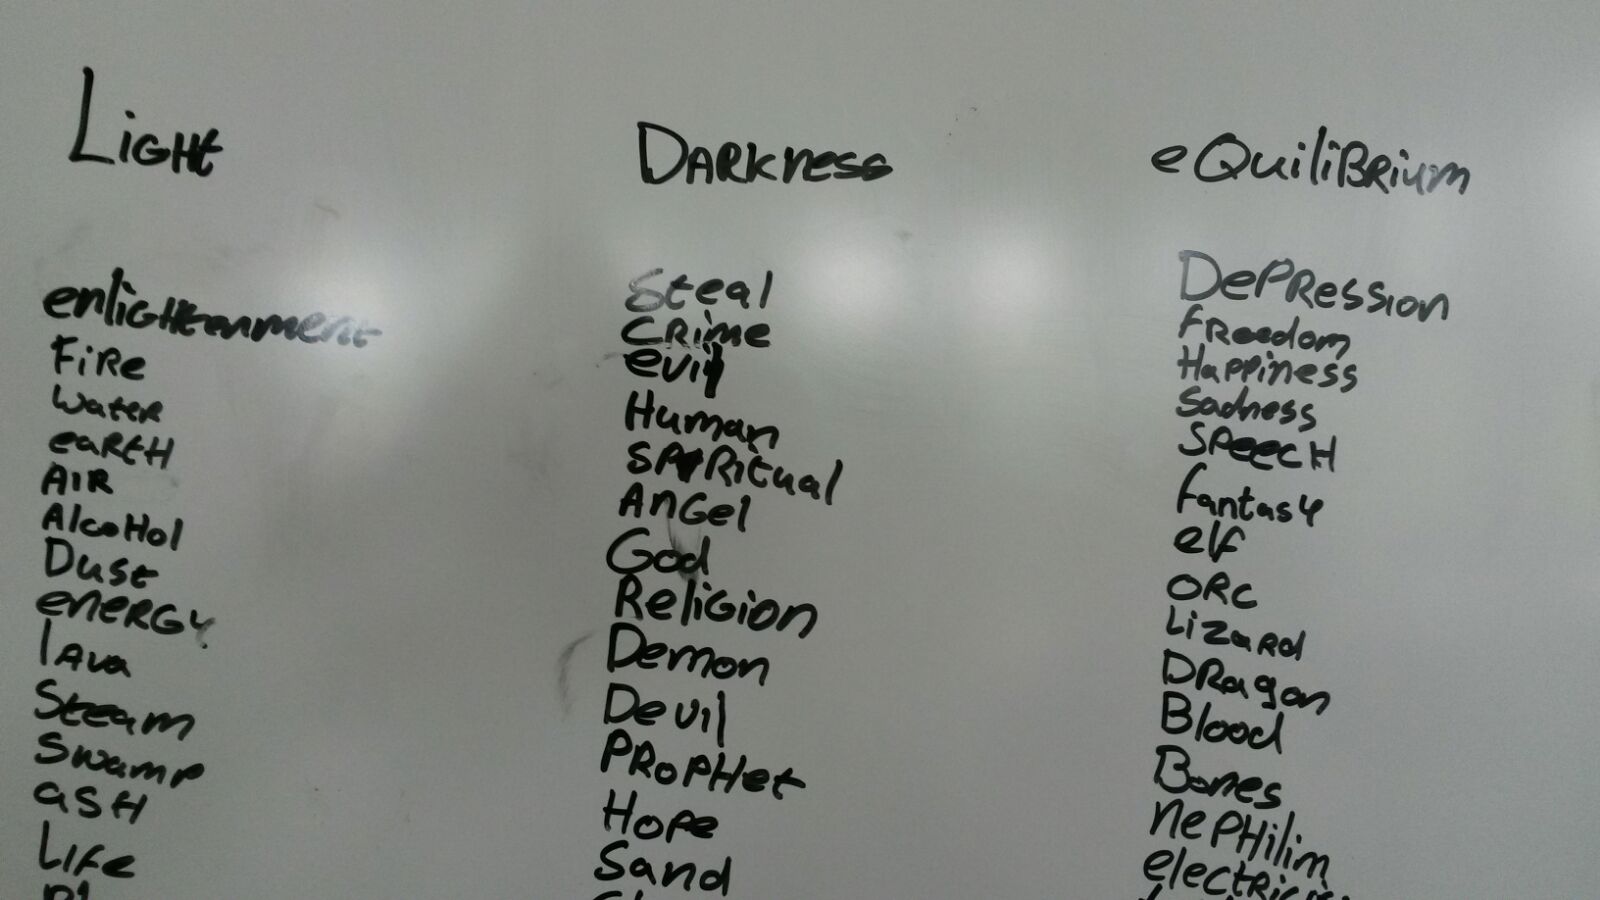 Light
enlightenment
Fire
Water
earth
AIR
AlcoHol
Dust
eneRGy
lava
Steam
Swamp
asH
Life
Darkness
Steal
Crime
evil
Human
SPiRitual
Angel
God
Religion
Demon
Devil
PRoPHet
Hope
Sand
eQuiliBRium
DePRession
fReedom
Happiness
Sadness
SPeecH
fantasy
elf
ORC
Lizard
DRagon
Blood
Bones
nePHilim